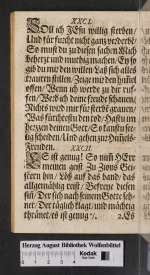 XXCI.
Soll ich JEsu willig sterben/
Und für furcht nicht ganz verderbē/
So must du zu diesen sachen Mich
behertzt und muthig machen. Ey so
gib du mir den willen Laß sich alles
trauren stillen. Zeige mir den himel
offen/ Wenn ich werde zu dir
ruffen/ Weil ich deine freude
Nichts wird mir für sterbē grauen.
Was fürchtest du den tod/ Hast du im
hertzen deinen Gott/ So kanst du selig
scheiden/ Und gehen zur Him̄els-
Freuden.
XXCII.
Es ist genug! So nim̄ HErr
meinen geist Zu Zions Gei-
stern hin/ Löß auf das band das
allgemählig reist/ Befreye diesen
sin̄/ Der sich nach seinem Gotte seh-
net/ Der täglich klagt/ und nächtig
thränet/ es ist genug 2. Es
Herzog August Bibliothek Wolfenbüttel
Kodak